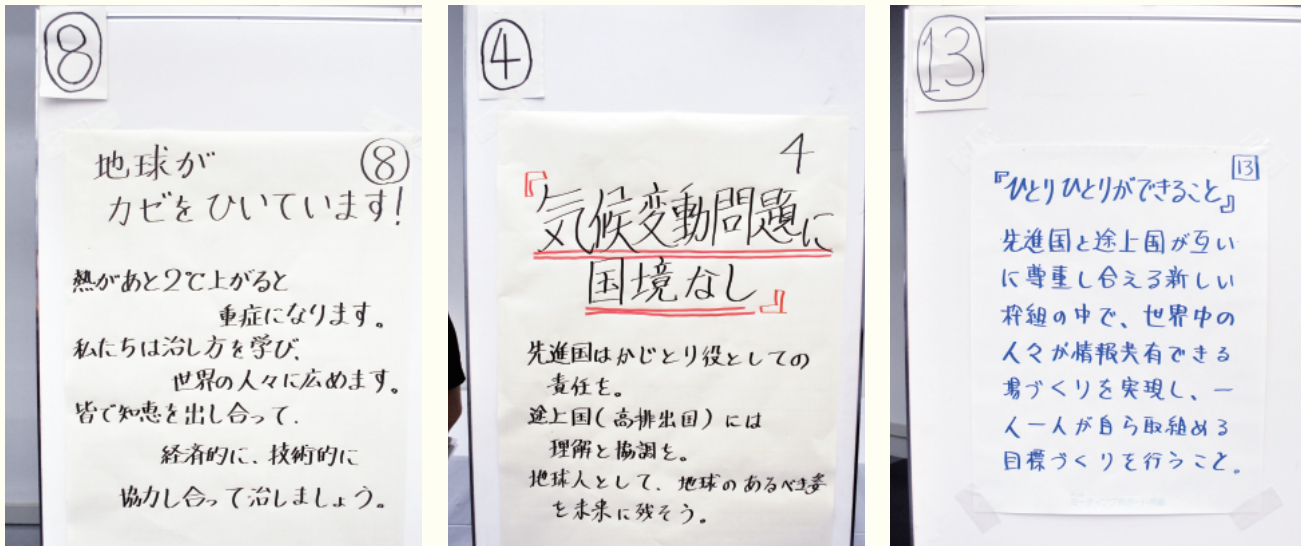 ⑧
地球が
⑧
カゼをひいています!
熱があと2℃上がると
重症になります。
私たちは治し方を学び、
世界の人々に広めます。
皆で知恵を出し合って、
経済的に、技術的に
協力し合って治しましょう。
④
4
『気候変動問題に
国境なし』
先進国はかじとり役としての
責任を。
途上国(高排出国)には
理解と協調を。
地球人として、地球のあるべき姿
を未来に残そう。
⑬
13
『ひとりひとりができること』
先進国と途上国が互い
に尊重し合える新しい
枠組の中で、世界中の
人々が情報共有できる
場づくりを実現し、一
人一人が自ら取組める
目標づくりを行うこと。